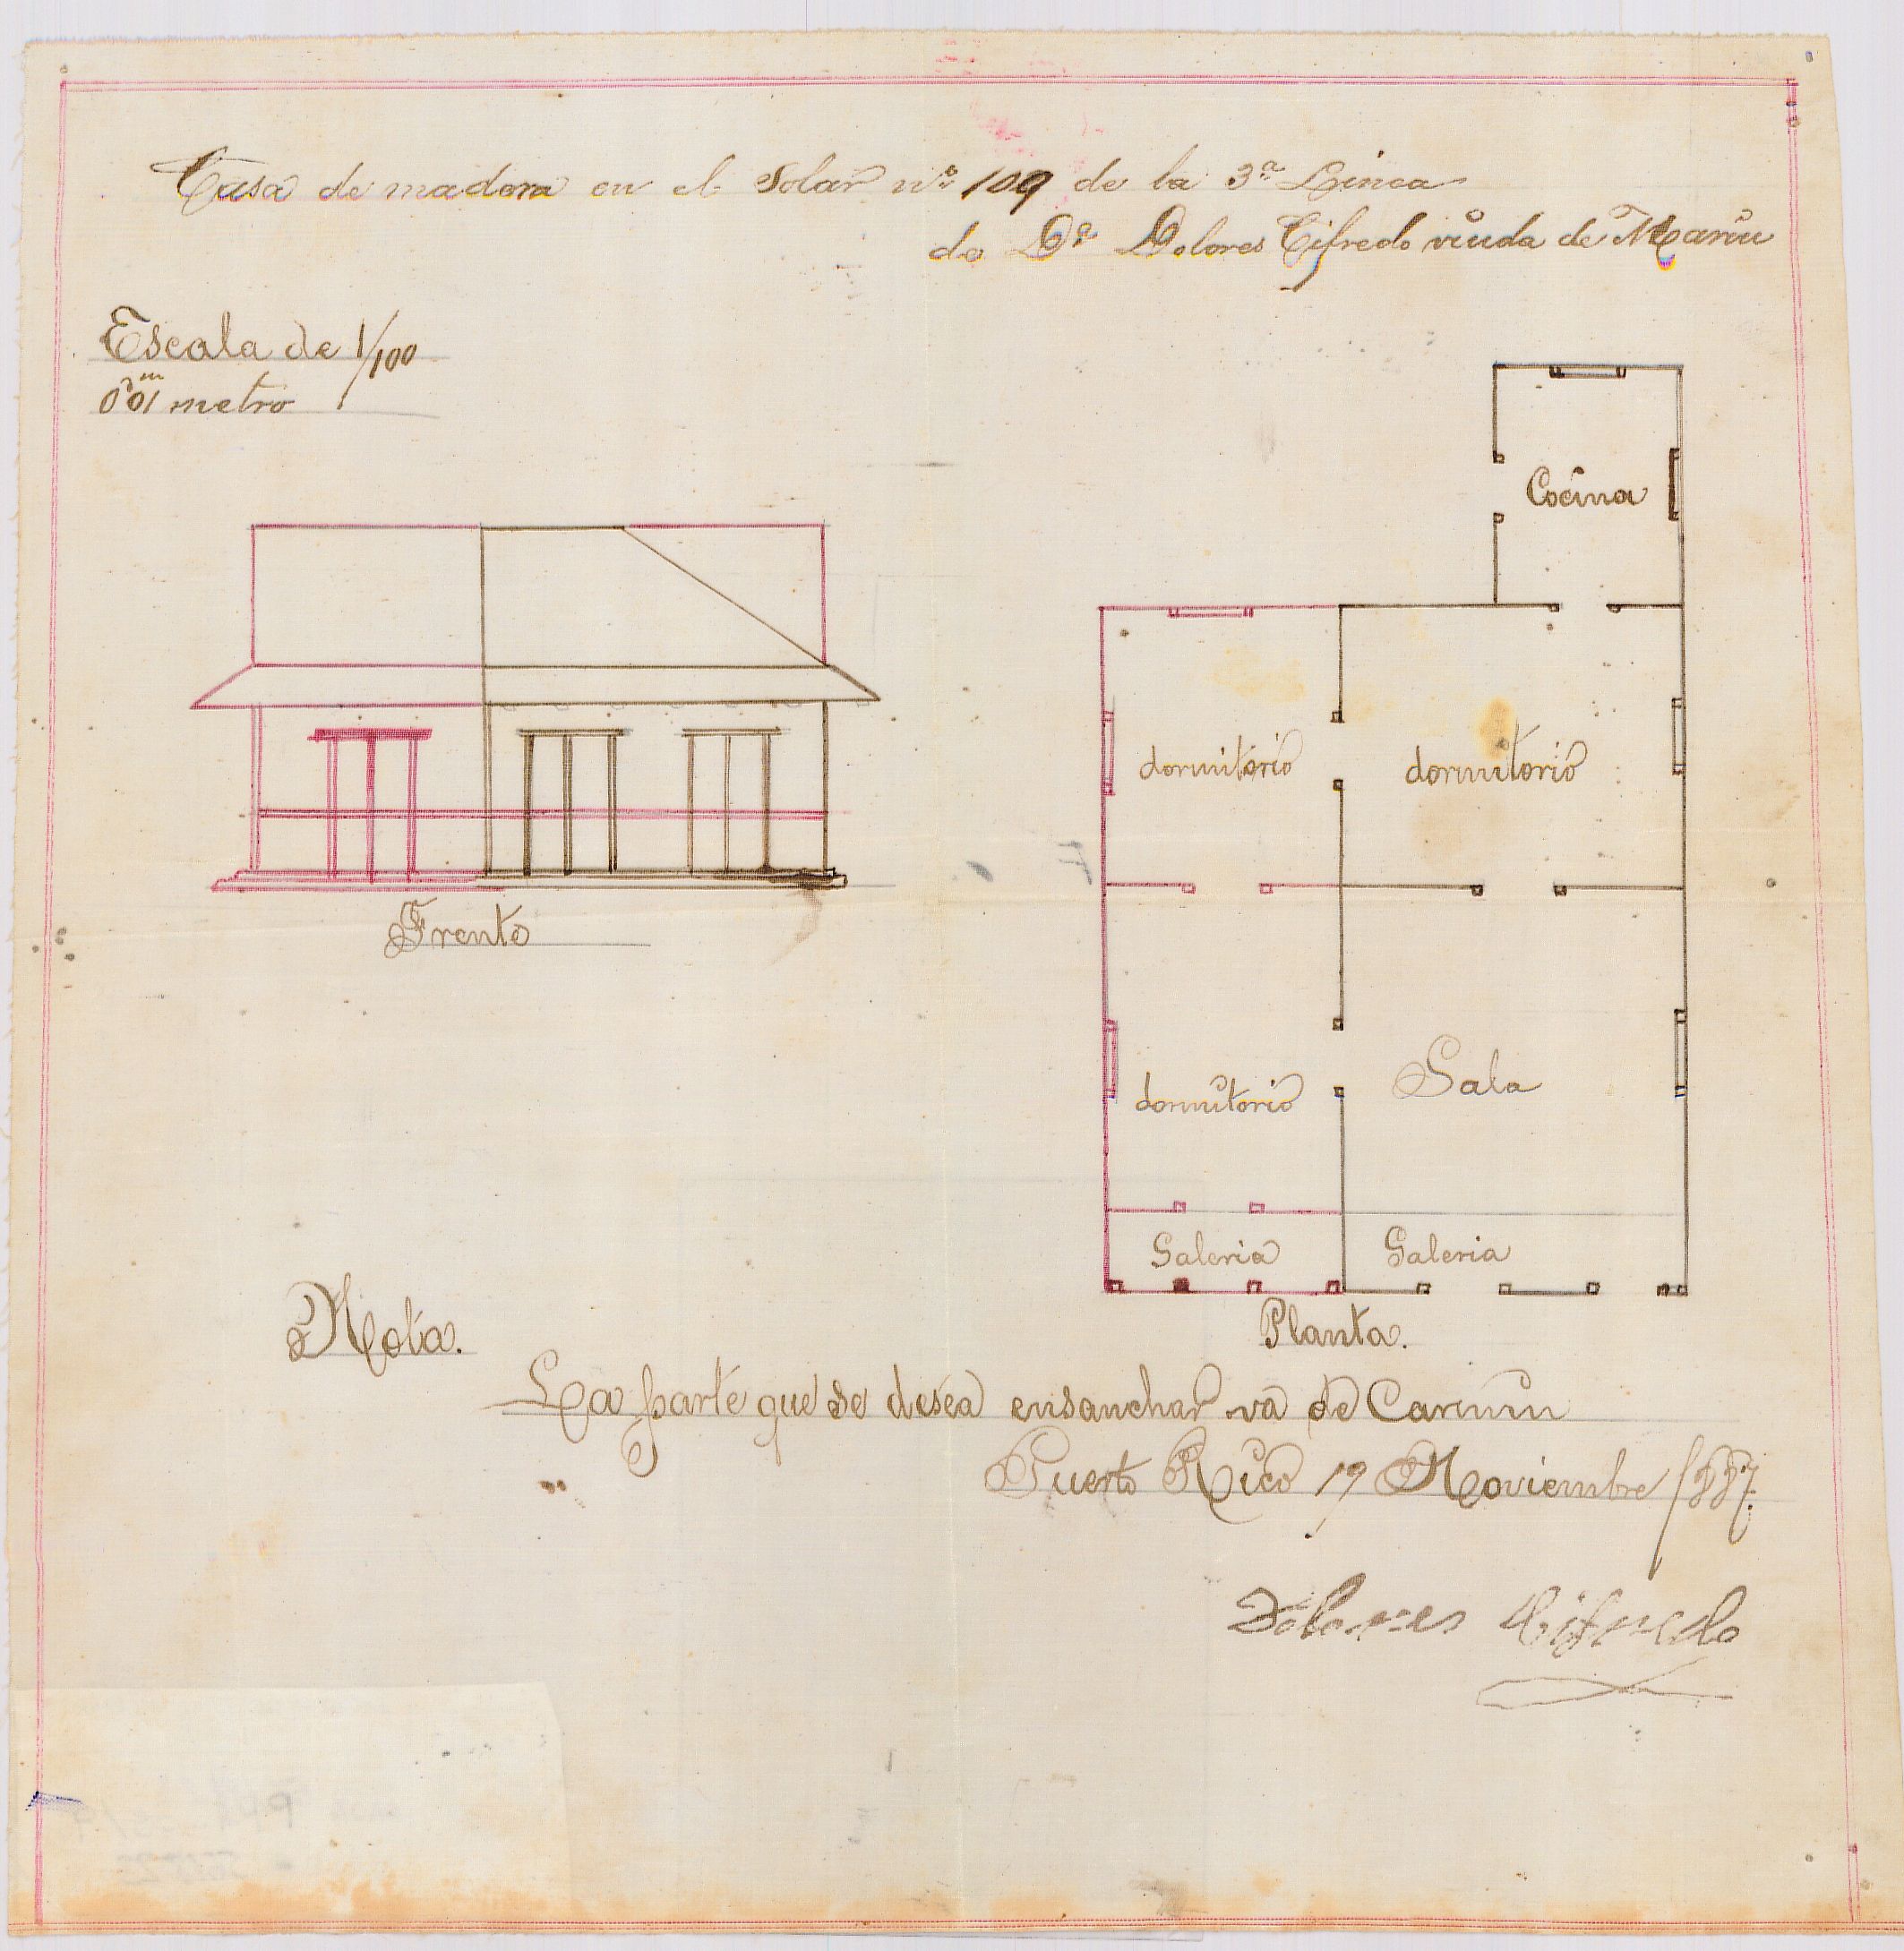 Casa de madera en el Solar nº 109 de la 3ª Linea
de Dª Dolores Cifredo viuda de Marin
Escala de 1/100
0,01 metro
m
Cocina
dormitorio
dormitorio
Frente
dormitorio
Sala
Galeria
Galeria
Planta.
Nota.
La parte que se desea ensanchar va de Carmin
Puerto Rico 19 Noviembre 1887.
Dolores Cifredo